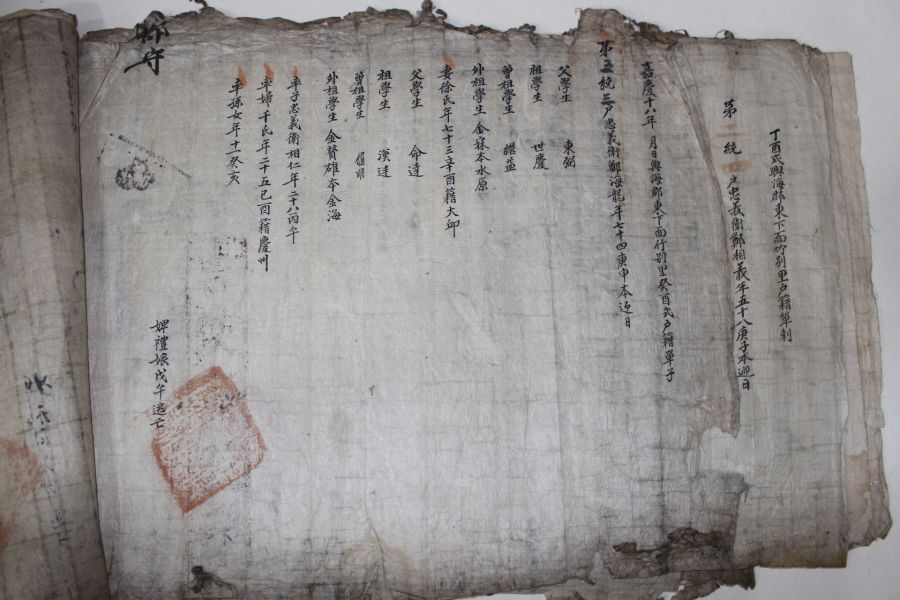 丁酉式興海郡東下面竹別里戶籍單刺
第 統 戶忠義衛鄭相義年五十八庚子本迎日
嘉慶十八年 月日興海郡東下面竹別里癸酉式戶籍單子
第五統三戶忠義衛鄭海龍年七十四庚申本迎日
父學生 東弼
祖學生 世慶
曾祖學生 繼益
外祖學生金 本水原
妻徐氏年七十三辛酉籍大邱
父學生 命達
祖學生 漢廷
曾祖學生
外祖學生金贊雄本金海
率子忠義衛相仁年二十八丙午
率婦千氏年二十五己酉籍慶州
率孫女年十一癸亥
婢禮娘戊午逃亡
郡守